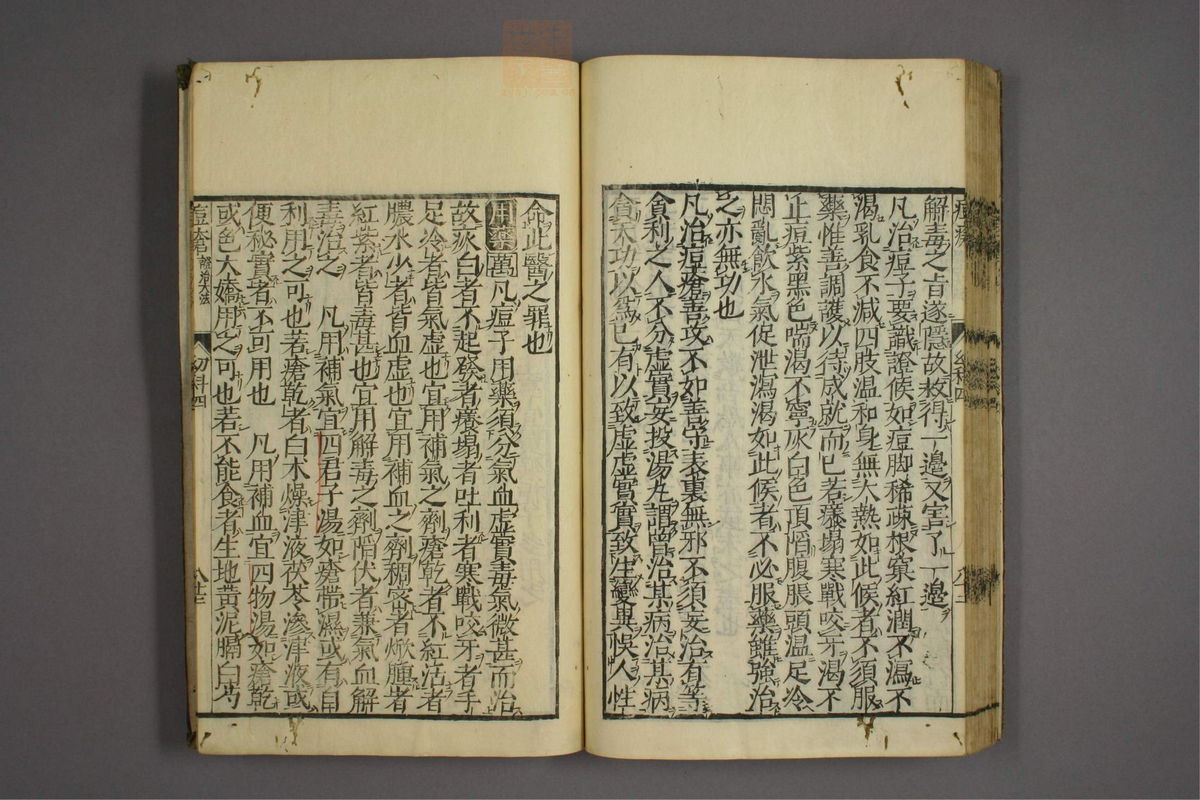 解毒之旨遂隱故救得一邊又害了一邊
凡治痘子要識證候如痘脚稀疎根窠紅潤不瀉不
渴乳食不減四肢温和身無大熱如此候者不須服
藥惟善調護以待成就而已若癢塌寒戰咬牙渴不
止痘紫黑色喘渴不寧灰白色頂陷腹脹頭温足冷
悶亂飲水氣促泄瀉渴如此候者不必服藥雖強治
之亦無功也
凡治痘瘡善攻不如善守表裏無邪不須妄治有等
貪利之人不分虛實妄投湯丸謂曾治某病治某病
貪天功以爲已有以致虛虛實實致生變異悞人性
命此醫之罪也
用藥 萬凡痘子用藥須分氣血虛實毒氣微甚而治
故灰白者不起發者癢塌者吐利者寒戰咬牙者手
足冷者皆氣虛也宜用補氣之劑瘡乾者不紅活者
膿水少者皆血虛也宜用補血之劑稠宻者焮腫者
紅紫者皆毒甚也宜用解毒之劑陷伏者兼氣血解
毒治之　凡用補氣宜四君子湯如瘡帶濕或有自
利用之可也若瘡乾者白朮燥津液茯苓滲津液或
便秘實者不可用也　凡用補血宜四物湯如瘡乾
或色大嬌用之可也若不能食者生地黃泥膈白芍
痘瘡 證治大法 幼科四 八十二